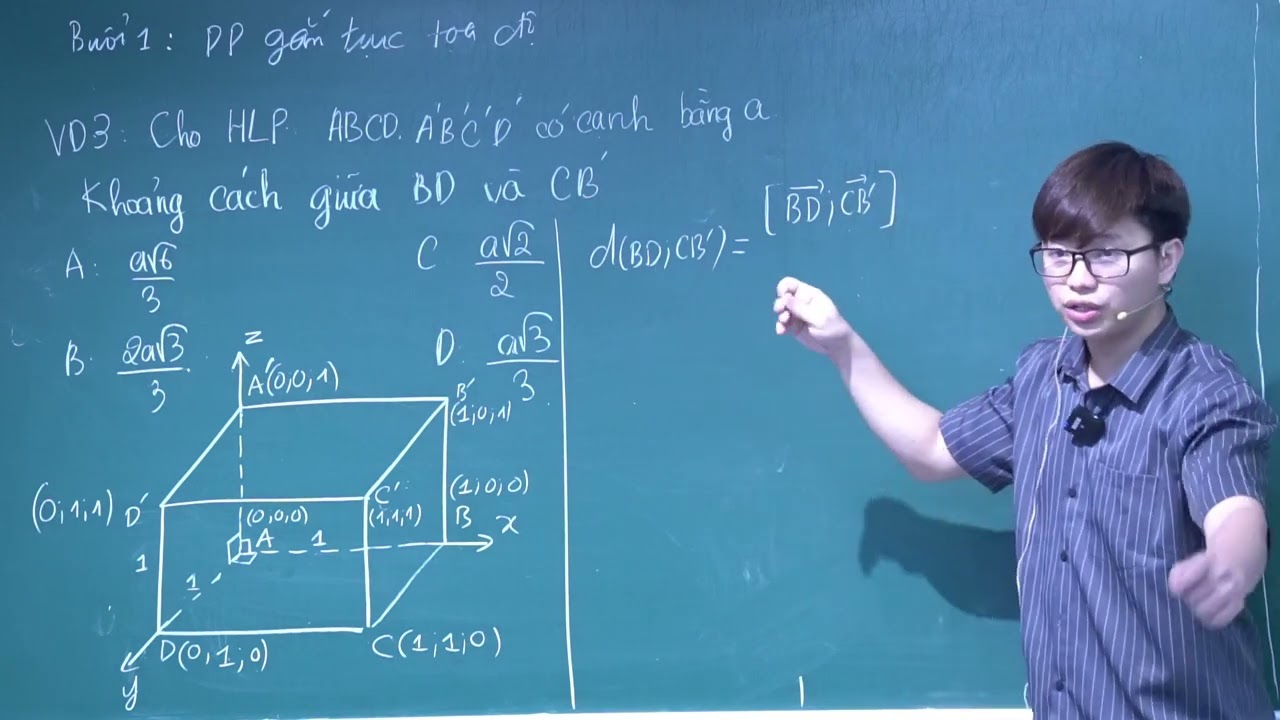 Buổi 1: PP gắn trục tọa độ
VD3: Cho HLP. ABCD.A'B'C'D' có cạnh bằng a
Khoảng cách giữa BD và CB'
A: a√6/3
C a√2/2
B. 2a√3/3
D. a√3/3
z
A'(0,0,1)
B'
(1;0,1)
(0;1;1) D'
C'
(1,1,1)
(0,0,0)
A
1
(1;0;0)
B
x
1
1
D(0,1,0)
C(1;1;0)
y
d(BD;CB') =
[BD→;CB'→]